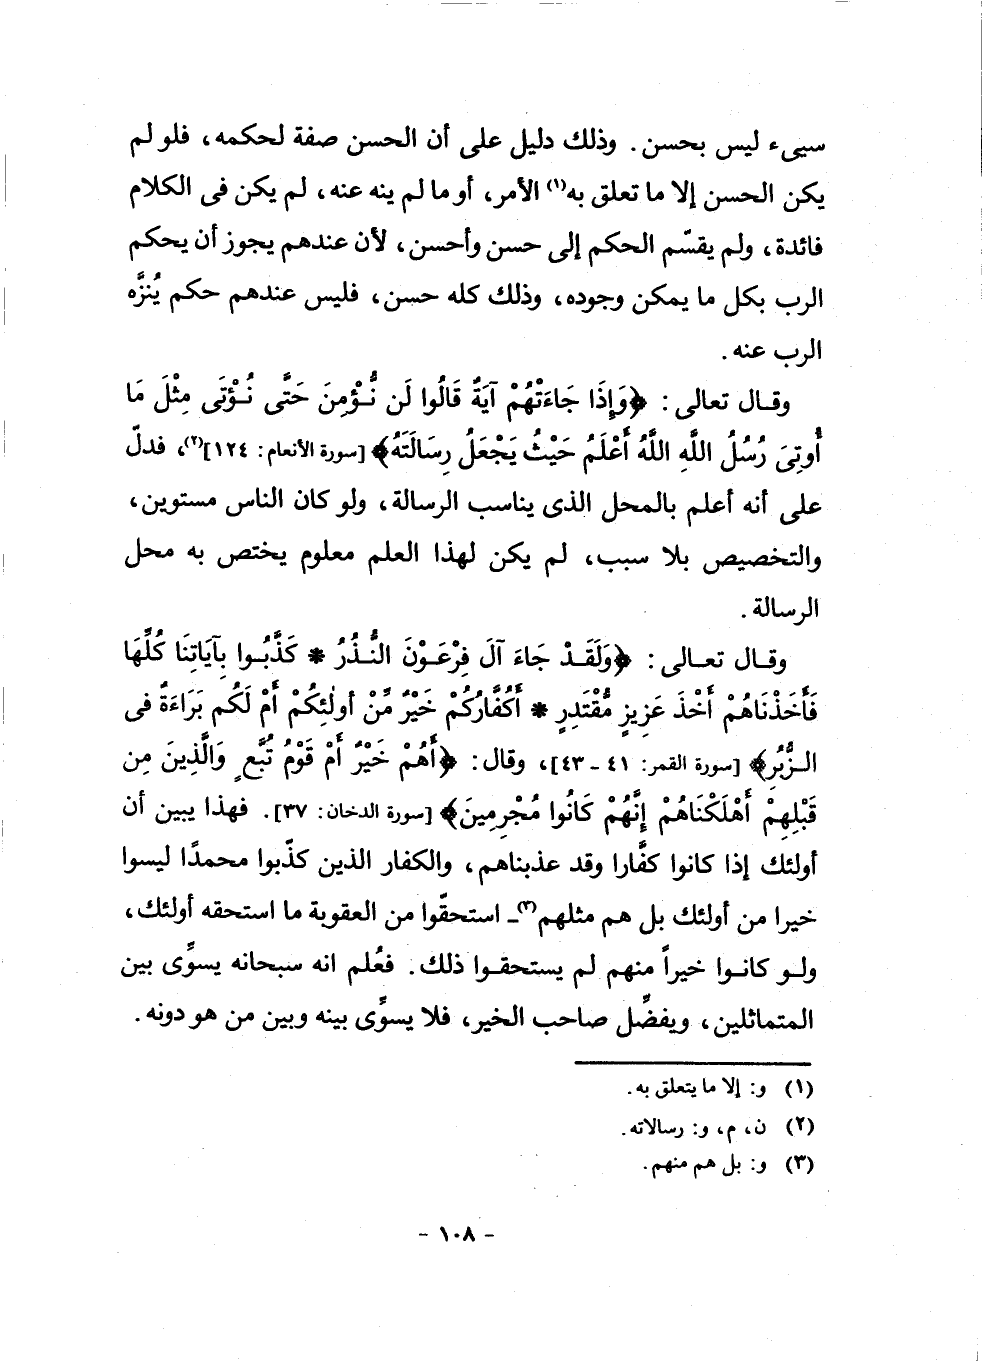 سيىء ليس بحسن. وذلك دليل على أن الحسن صفة لحكمه، فلو لم
يكن الحسن إلا ما تعلق به(١) الأمر، أو ما لم ينه عنه، لم يكن فى الكلام
فائدة، ولم يقسّم الحكم إلى حسن وأحسن، لأن عندهم يجوز أن يحكم
الرب بكل ما يمكن وجوده، وذلك كله حسن، فليس عندهم حكم يُنزَّه
الرب عنه.
وقـال تعالى: ﴿وَإِذَا جَاءَتْهُمْ آيَةٌ قَالُوا لَن نُّـؤْمِنَ حَتَّى نُـؤْتَى مِثْلَ مَا
أُوتِىَ رُسُلُ اللَّهِ اللَّهُ أَعْلَمُ حَيْثُ يَجْعَلُ رِسَالَتَهُ﴾ [سورة الأنعام: ١٢٤](٢)، فدلّ
على أنه أعلم بالمحل الذى يناسب الرسالة، ولو كان الناس مستوين،
والتخصيص بلا سبب، لم يكن لهذا العلم معلوم يختص به محل
الرسالة.
وقـال تعـالى: ﴿وَلَقَـدْ جَاءَ آلَ فِرْعَـوْنَ النُّـذُرُ * كَذَّبُـوا بِآيَاتِنَا كُلِّهَا
فَأَخَذْنَاهُمْ أَخْذَ عَزِيزٍ مُّقْتَدِرٍ * أَكُفَّارُكُمْ خَيْرٌ مِّنْ أُولَٰئِكُمْ أَمْ لَكُم بَرَاءَةٌ فى
الـزُّبُرِ﴾ [سورة القمر: ٤١ ـ ٤٣]، وقال: ﴿أَهُمْ خَيْرٌ أَمْ قَوْمُ تُبَّعٍ وَالَّذِينَ مِن
قَبْلِهِمْ أَهْلَكْنَاهُمْ إِنَّهُمْ كَانُوا مُجْرِمِينَ﴾ [سورة الدخان: ٣٧]. فهذا يبين أن
أولئك إذا كانوا كفَّارا وقد عذبناهم، والكفار الذين كذّبوا محمدًا ليسوا
خيرا من أولئك بل هم مثلهم(٣)ـ استحقّوا من العقوبة ما استحقه أولئك،
ولـو كانـوا خيراً منهم لم يستحقـوا ذلك. فعُلم انه سبحانه يسوِّى بين
المتماثلين، ويفضِّل صاحب الخير، فلا يسوِّى بينه وبين من هو دونه.
(١) و: إلا ما يتعلق به.
(٢) ن، م، و: رسالاته.
(٣) و: بل هم منهم.
- ١٠٨ -